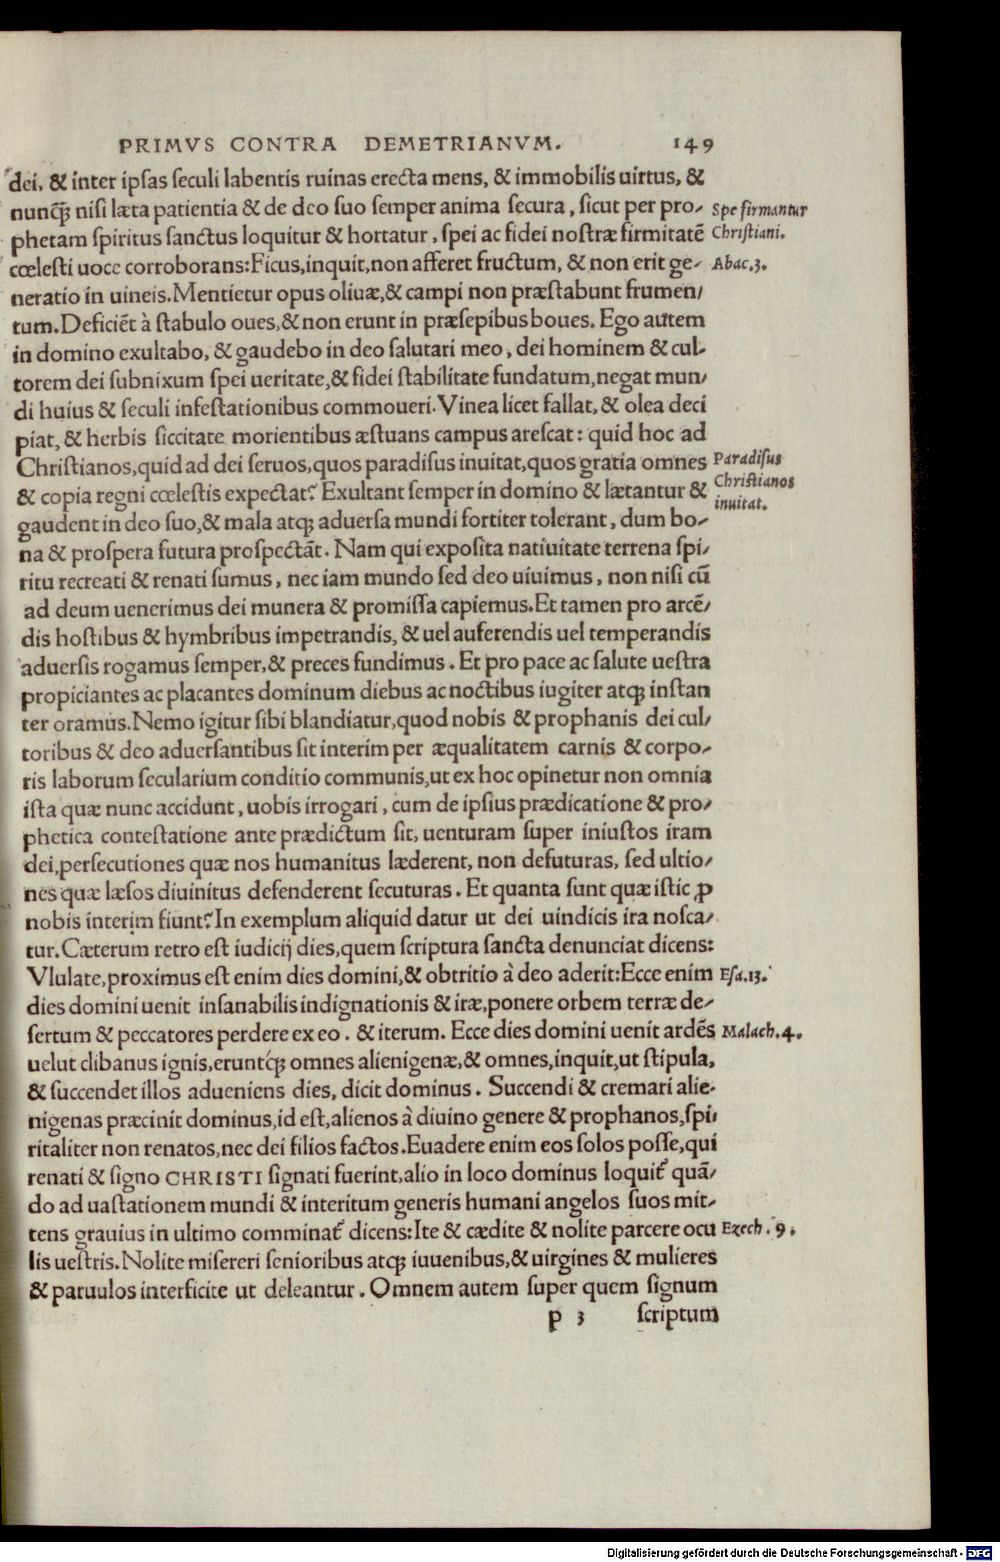 PRIMVS CONTRA DEMETRIANVM. 149
dei, & inter ipſas ſeculi labentis ruinas erecta mens, & immobilis uirtus, &
nunq̃ꝫ niſi læta patientia & de deo ſuo ſemper anima ſecura, ſicut per pro-
Spe firmantur
phetam ſpiritus ſanctus loquitur & hortatur, ſpei ac fidei noſtræ firmitatē
Chriſtiani.
cœleſti uoce corroborans: Ficus, inquit, non afferet fructum, & non erit ge-
Abac.3.
neratio in uineis. Mentietur opus oliuæ, & campi non præſtabunt frumen/
tum. Deficiēt à ſtabulo oues, & non erunt in præſepibus boues. Ego autem
in domino exultabo, & gaudebo in deo ſalutari meo, dei hominem & cul-
torem dei ſubnixum ſpei ueritate, & fidei ſtabilitate fundatum, negat mun/
di huius & ſeculi infeſtationibus commoueri. Vinea licet fallat, & olea deci
piat, & herbis ſiccitate morientibus æſtuans campus areſcat: quid hoc ad
Chriſtianos, quid ad dei ſeruos, quos paradiſus inuitat, quos gratia omnes
Paradiſus
& copia regni cœleſtis expectat? Exultant ſemper in domino & lætantur &
Chriſtianos
inuitat.
gaudent in deo ſuo, & mala atqꝫ aduerſa mundi fortiter tolerant, dum bo-
na & proſpera futura proſpectāt. Nam qui expoſita natiuitate terrena ſpi/
ritu recreati & renati ſumus, nec iam mundo ſed deo uiuimus, non niſi cū
ad deum uenerimus dei munera & promiſſa capiemus. Et tamen pro arcē/
dis hoſtibus & hymbribus impetrandis, & uel auferendis uel temperandis
aduerſis rogamus ſemper, & preces fundimus. Et pro pace ac ſalute ueſtra
propiciantes ac placantes dominum diebus ac noctibus iugiter atqꝫ inſtan
ter oramus. Nemo igitur ſibi blandiatur, quod nobis & prophanis dei cul/
toribus & deo aduerſantibus ſit interim per æqualitatem carnis & corpo-
ris laborum ſecularium conditio communis, ut ex hoc opinetur non omnia
iſta quæ nunc accidunt, uobis irrogari, cum de ipſius prædicatione & pro/
phetica conteſtatione ante prædictum ſit, uenturam ſuper iniuſtos iram
dei, perſecutiones quæ nos humanitus læderent, non defuturas, ſed ultio/
nes quæ læſos diuinitus defenderent ſecuturas. Et quanta ſunt quæ iſtic ꝓ
nobis interim fiunt? In exemplum aliquid datur ut dei uindicis ira noſca/
tur. Cæterum retro eſt iudicij dies, quem ſcriptura ſancta denunciat dicens:
Vlulate, proximus eſt enim dies domini, & obtritio à deo aderit: Ecce enim
Eſa.13.
dies domini uenit inſanabilis indignationis & iræ, ponere orbem terræ de-
ſertum & peccatores perdere ex eo. & iterum. Ecce dies domini uenit ardēs
Malach.4.
uelut clibanus ignis, erunt́qꝫ omnes alienigenæ, & omnes, inquit, ut ſtipula,
& ſuccendet illos adueniens dies, dicit dominus. Succendi & cremari alie-
nigenas præcinit dominus, id eſt, alienos à diuino genere & prophanos, ſpi/
ritaliter non renatos, nec dei filios factos. Euadere enim eos ſolos poſſe, qui
renati & ſigno CHRISTI ſignati fuerint, alio in loco dominus loquit᷑ quā/
do ad uaſtationem mundi & interitum generis humani angelos ſuos mit-
tens grauius in ultimo comminat᷑ dicens: Ite & cædite & nolite parcere ocu
Ezech. 9.
lis ueſtris. Nolite miſereri ſenioribus atqꝫ iuuenibus, & uirgines & mulieres
& paruulos interficite ut deleantur. Omnem autem ſuper quem ſignum
p 3 ſcriptum
Digitalisierung gefördert durch die Deutsche Forschungsgemeinschaft - DFG